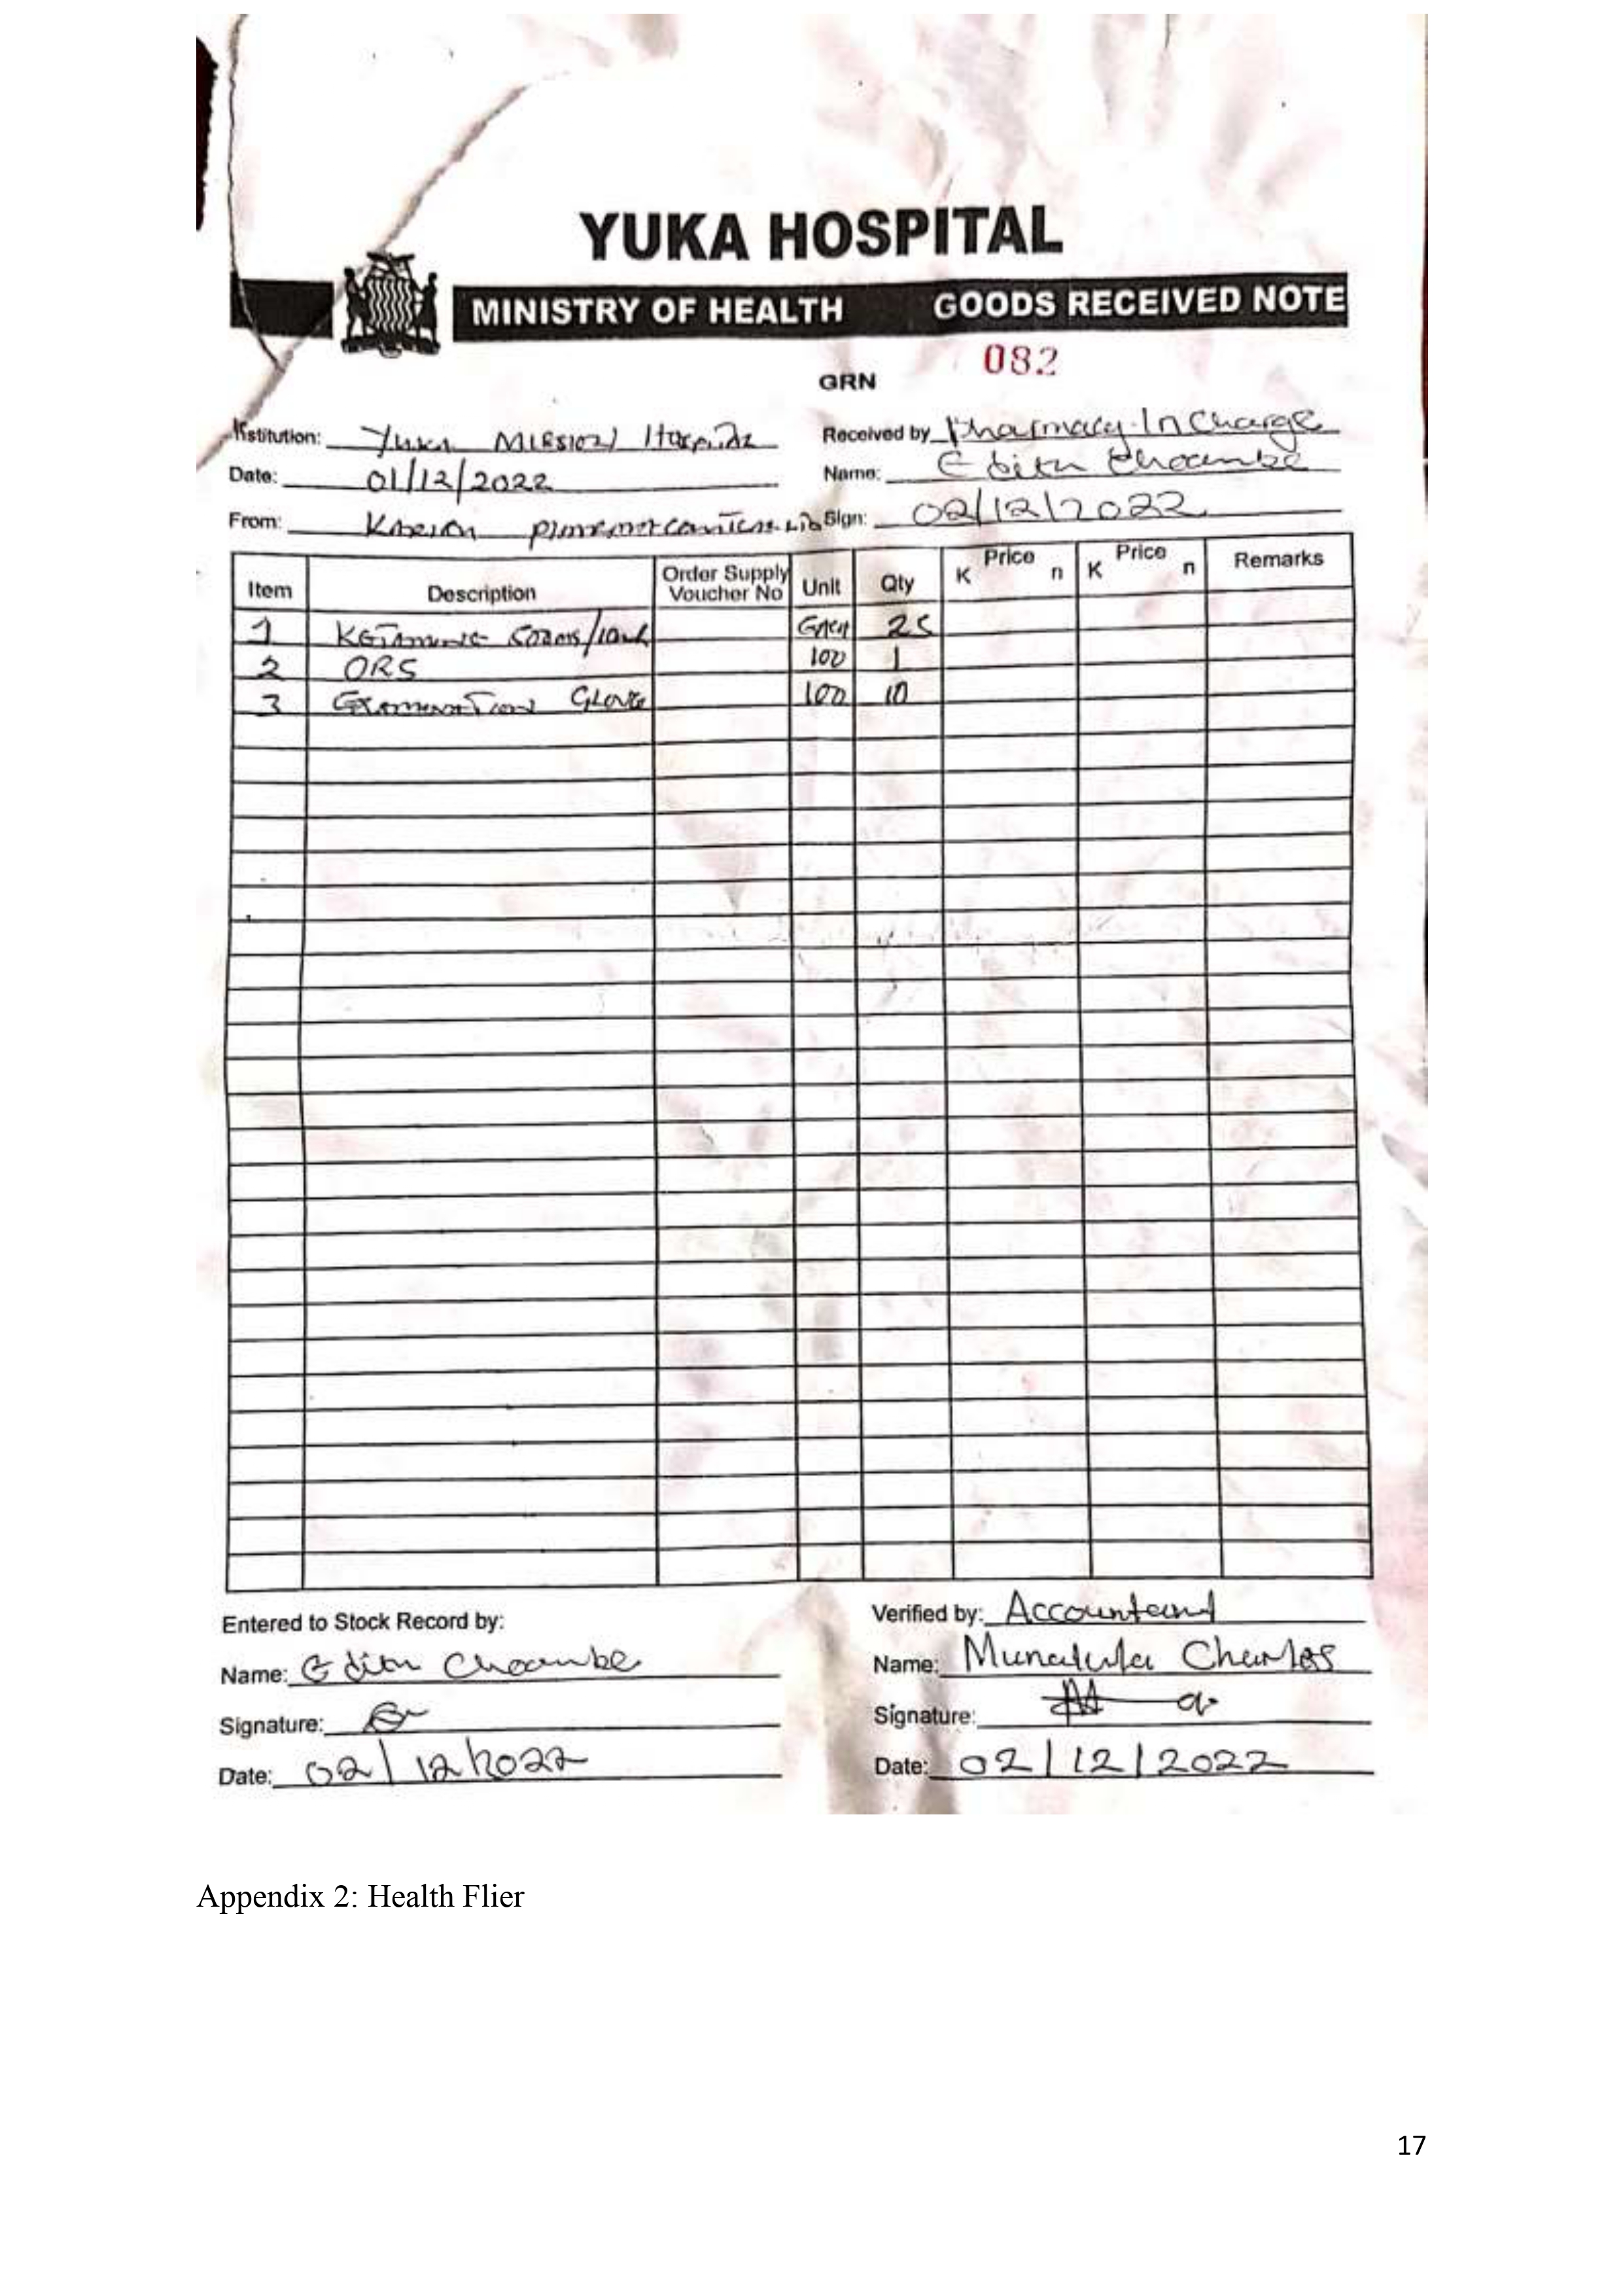 YUKA HOSPITAL
MINISTRY OF HEALTH GOODS RECEIVED NOTE
082
GRN
Institution: Yuka Mission Hospital Received by Pharmacy-In Charge
Date: 01/12/2022 Name: Edith Choambe
From: Sign: 02/12/2022
Item Description Order Supply Voucher No Unit Qty Price K n Price K n Remarks
1 Ketamine Each 25
2 ORS 100 1
3 Examination Glove 100 10
Entered to Stock Record by: Verified by: Accountant
Name: Edith Choambe Name: Munalula Charles
Signature: Signature:
Date: 02/12/2022 Date: 02/12/2022
Appendix 2: Health Flier
17